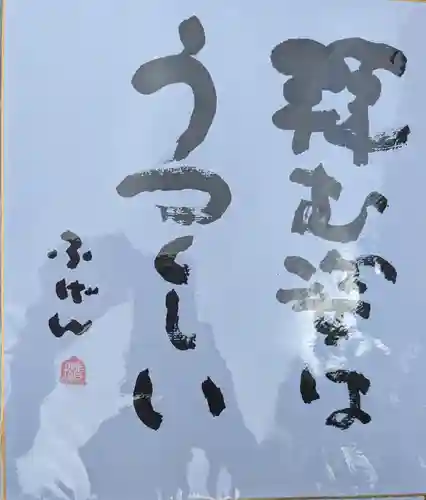 拝む姿は
うつくしい
ふげん